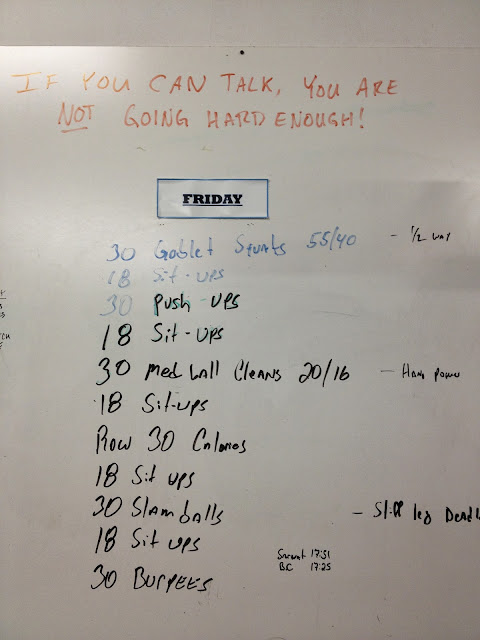 IF YOU CAN TALK, YOU ARE
NOT GOING HARD ENOUGH!
FRIDAY
30 Goblet Squats 55/40 - 1/2 way
18 Sit-ups
30 Push-ups
18 Sit-ups
30 Med ball Cleans 20/16 - Hang power
18 Sit-ups
Row 30 Calories
18 Sit ups
30 Slam balls - Stiff leg Deadl
18 Sit ups
17:51
BC 17:25
30 BURPEES